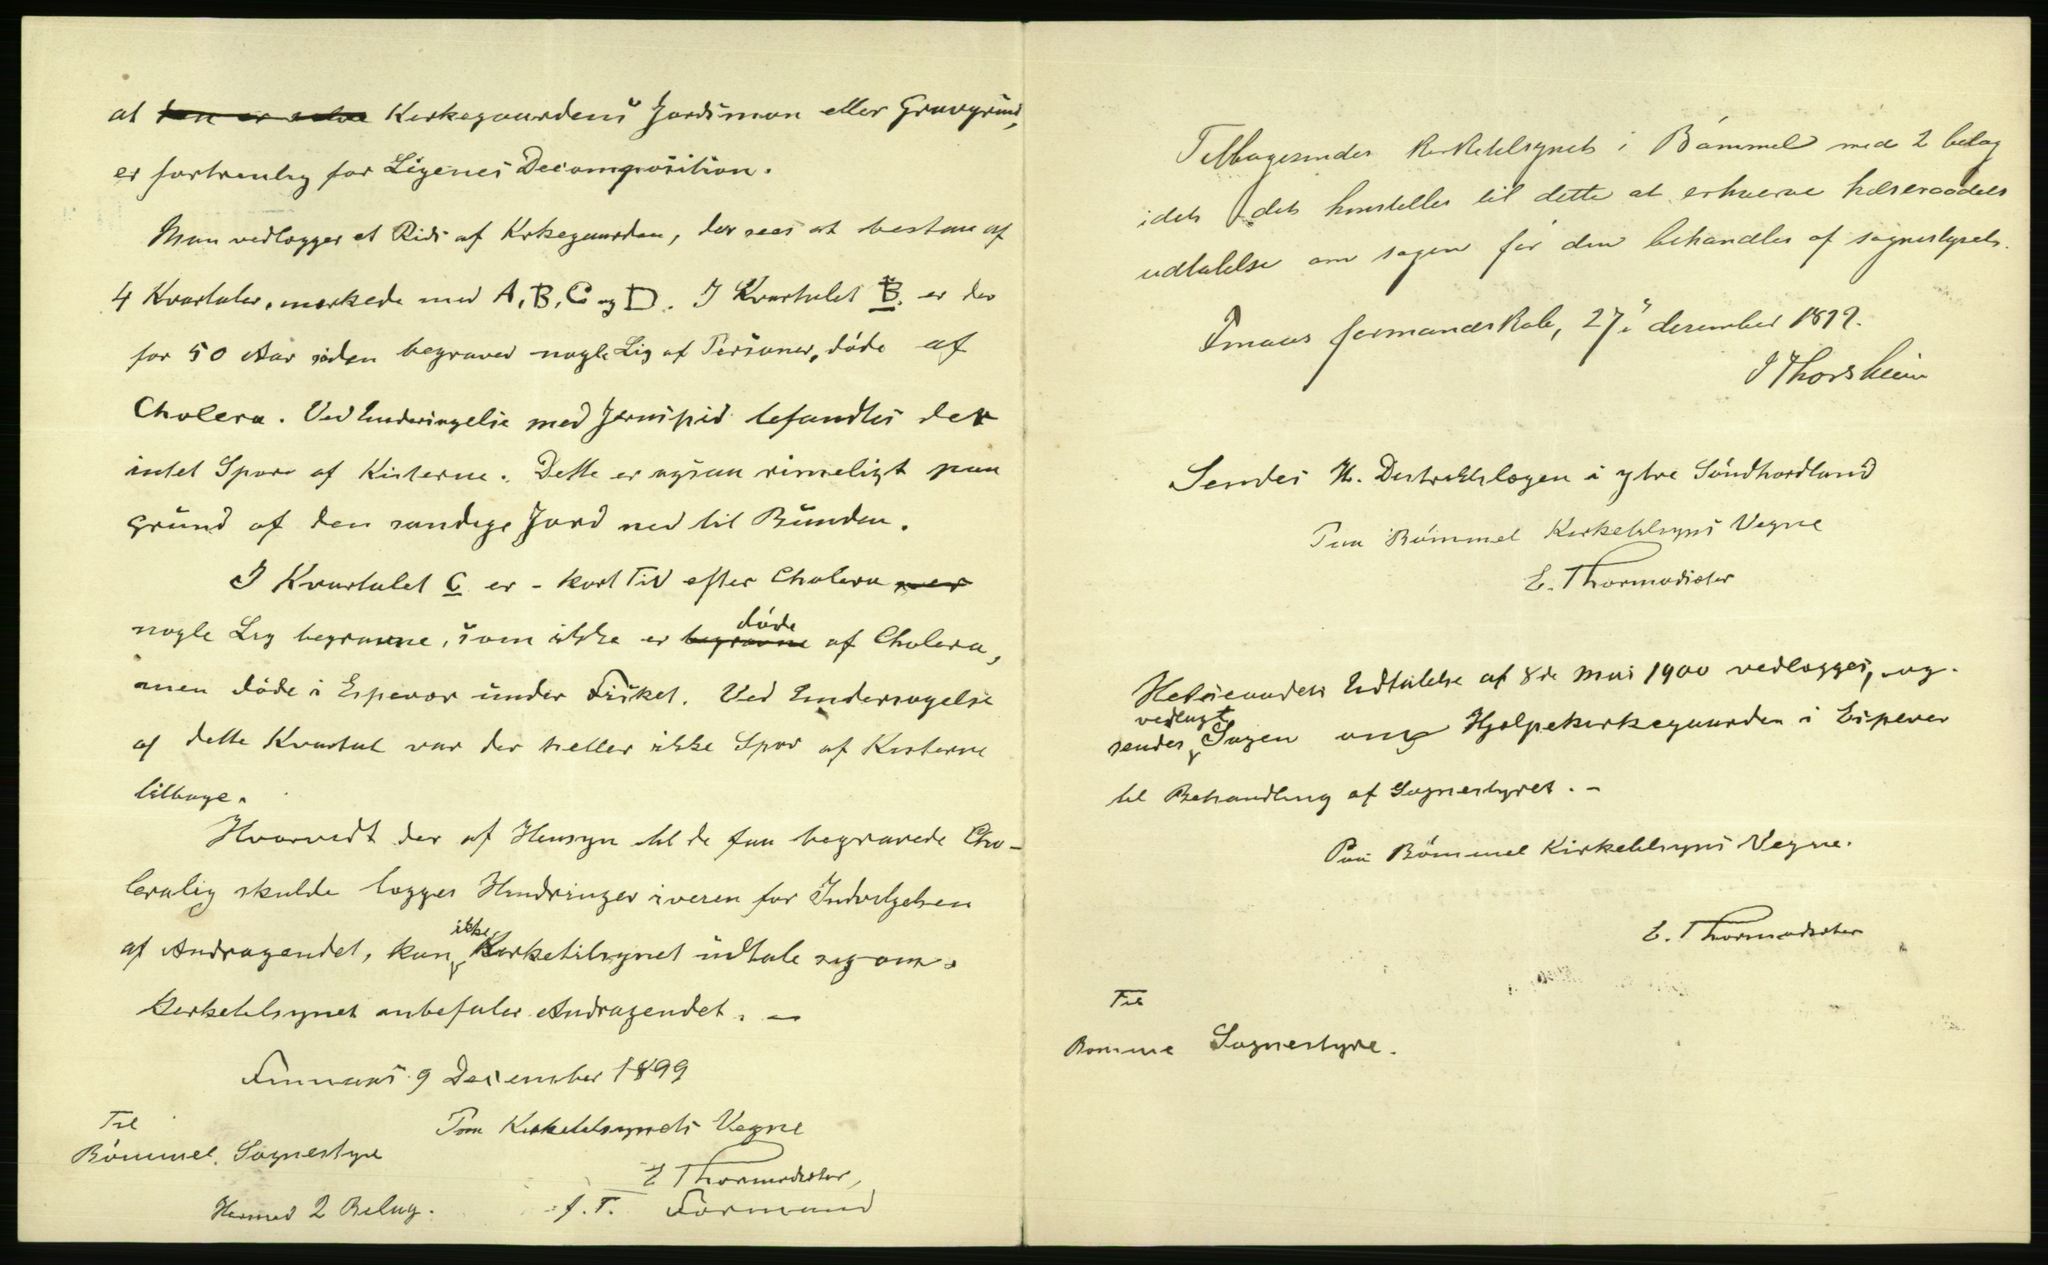 at den er selve Kirkegaardens Jordsmon eller Gravgrund,
er fortrinlig for Ligenes Decomposition.
Man vedlægger et Rids af Kirkegaarden, der sees at bestaa af
4 Kvartaler, mærkede med A, B, C og D. I Kvartalet B. er der
for 50 Aar siden begravet nogle Lig af Personer, døde af
Cholera. Ved Undersøgelse med Jernspid befandtes der
intet Spor af Kisterne. Dette er ogsaa rimeligt paa
Grund af den sandige Jord ned til Bunden.
I Kvartalet C er - kort Tid efter Cholera
nogle Lig begravne, som ikke er begravne døde af Cholera,
men døde i Espevær under Fisket. Ved Undersøgelse
af dette Kvartal var der heller ikke Spor af Kisterne
tilbage.
Hvorvidt der af Hensyn til de faa begravede Cho-
leralig skulde lægges Hindringer iveien for Indvilgelsen
af Andragendet, kan ikke Kirketilsynet udtale sig om.
Kirketilsynet anbefaler Andragendet. -
Finnaas 9 December 1899
Paa Kirketilsynets Vegne
E Thormodsæter,
f. T. Formand
Til
Bømmel Sognestyre
Hermed 2 Bilag.
Tilbagesendes kirketilsynets i Bømmel med 2 bilag
idet det henstilles til dette at erhverve helseraadets
udtalelse om sagen før den behandles af sognestyret.
Finnaas formandskab, 27/ desember 1899.
J Thorsheim
Sendes Hr. Distriktslægen i ytre Søndhordland
Paa Bømmel Kirketilsyns Vegne
E. Thormodsæter
Helseraadets Udtalelse af 8de Mai 1900 vedlægges, og
sendes vedlagt Sagen om Hjælpekirkegaarden i Espevær
til Behandling af Sognestyret. -
Paa Bømmel Kirketilsyns Vegne.
E. Thormodsæter
Til
Bømmel Sognestyre.